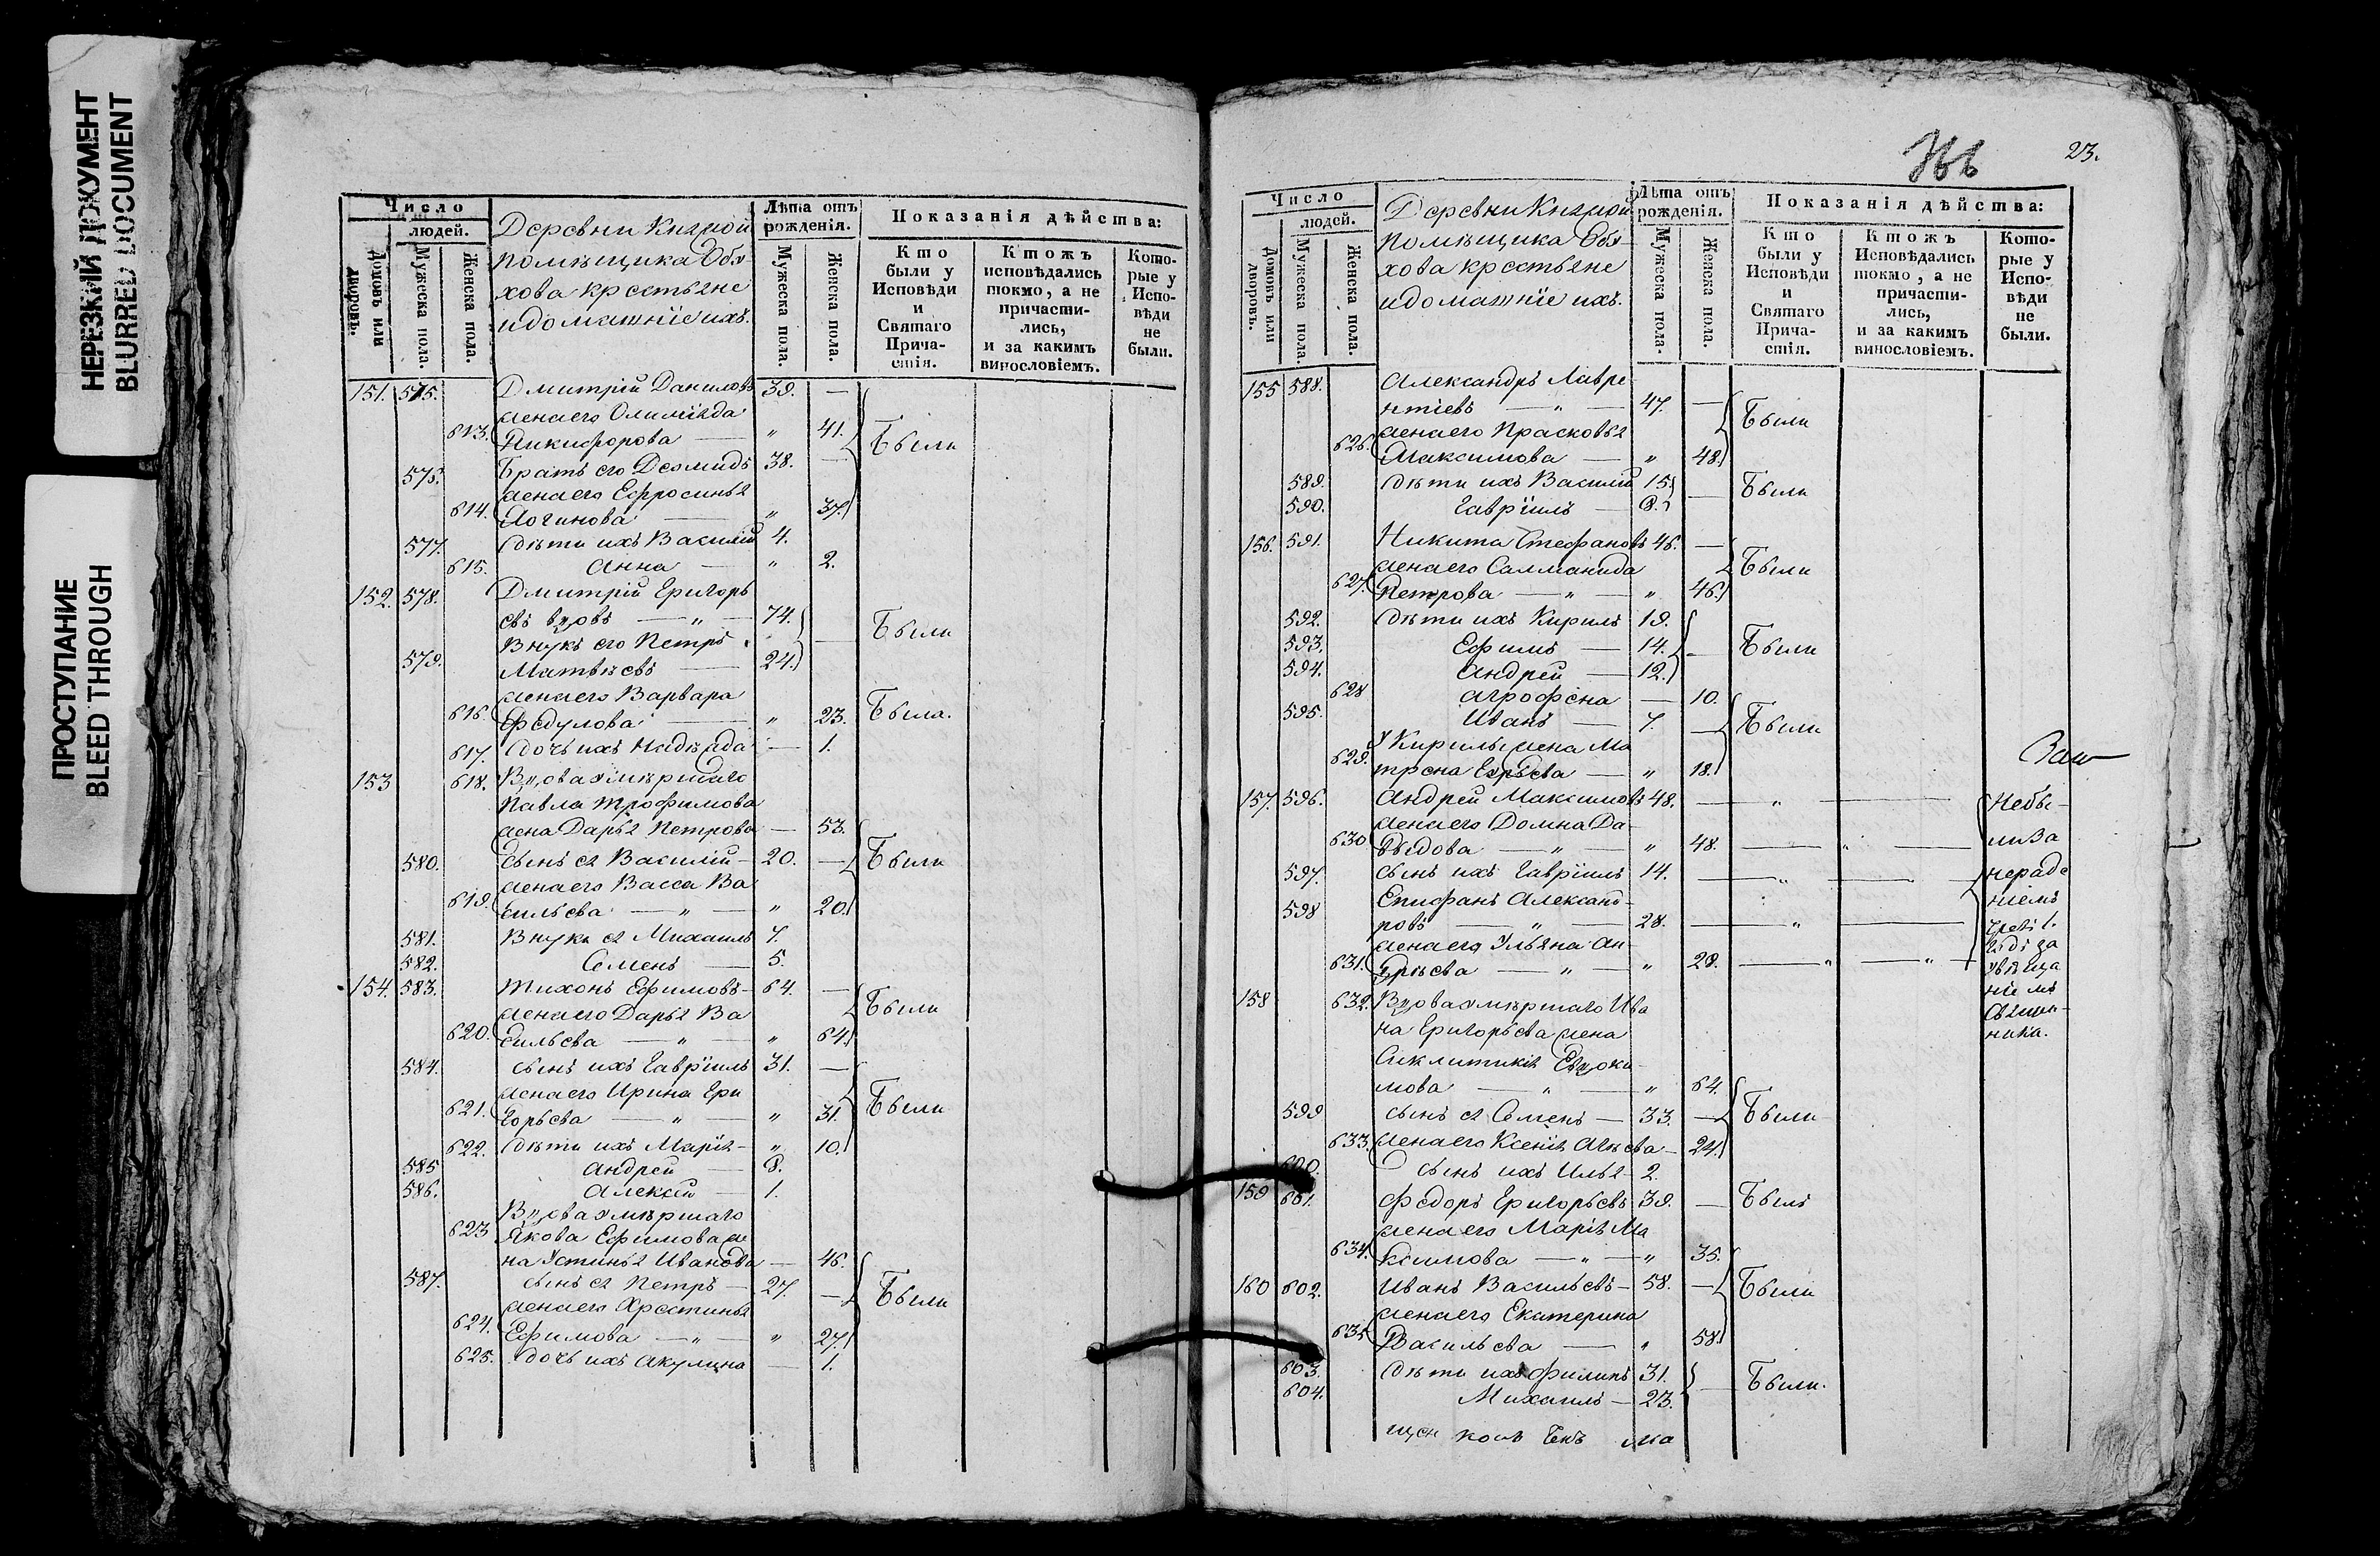 НЕРЕЗКИЙ ДОКУМЕНТ
BLURRED DOCUMENT
ПРОСТУПАНИЕ
BLEED THROUGH
Число
людей.
Домовъ или дворовъ.
Мужеска пола.
Женска пола.
Деревни Княжой
помѣщика Обх
хова крестьяне
и домашніе ихъ.
Лѣта отъ рожденія.
Мужеска пола.
Женска пола.
Показанія дѣйства:
Кто были у Исповѣди и Святаго Прича-стія.
Ктожъ исповѣдались токмо, а не причасти-лись, и за какимъ винословіемъ.
Кото-рые у Испо-вѣди не были.
151. 575. Дмитрій Даниловъ 39. —
жена его Олимпіада
613. Никифорова — " 41. Были
576. Братъ его Деомидъ 38. —
жена его Ефросинья
614. Логинова — " 37.
577. Дѣти ихъ Василій 4.
615. Анна — " 2.
152. 578. Дмитрій Григорь
евъ вдовъ — " — 74. Были
Внукъ его Петръ
579. Матвѣевъ — 24.
жена его Варвара
616. Федулова — " 23. Была.
617. Дочь ихъ Надежда — 1.
153 618. Вдова умершаго
Павла Трофимова
жена Дарья Петрова — 53.
580. Сынъ ея Василій — 20. — Были
жена его Васса Ва
619. сильева — " — " 20.
581. Внуки ея Михаилъ 7.
582. Семенъ — 5.
154. 583. Тихонъ Ефимовъ — 64. —
жена его Дарья Ва Были
620. сильева — " — " 64.
584. Сынъ ихъ Гавріилъ 31. —
жена его Ирина Гри
621. горьева — " — " 31. Были
622. Дѣти ихъ Марія — " 10.
585 Андрей — 8.
586. Алексій — 1.
Вдова умершаго
623 Якова Ефимова же
на Устинья Иванова — 46.
587. Сынъ ея Петръ — 27. — Были
жена его Хрестинья
624. Ефимова — " — " 27.
625. Дочь ихъ Акулина — 1.
23.
Число
людей.
Домовъ или дворовъ.
Мужеска пола.
Женска пола.
Деревни Княжой
помѣщика Обх
хова крестьяне
и домашніе ихъ.
Лѣта отъ рожденія.
Мужеска пола.
Женска пола.
Показанія дѣйства:
Кто были у Исповѣди и Святаго Прича-стія.
Ктожъ Исповѣдались токмо, а не причасти-лись, и за какимъ винословіемъ.
Кото-рые у Испо-вѣди не были.
155 588. Александръ Лавре
нтіевъ — " — 47. — Были
жена его Прасковья
626. Максимова — " 48.
589. Дѣти ихъ Василій 15. — Были
590. Гавріилъ — 8.
156. 591. Никита Стефановъ 46. —
жена его Саломанида Были
627. Петрова — " — " 46.
592. Дѣти ихъ Кирилъ 19.
593. Ефимъ — 14. — Были
594. Андрей — 12.
628 Агрофена — 10.
595. Иванъ — 7. — Были
У Кирилы жена Ма
629. трена — " 18.
157. 596. Андрей Максимовъ 48. — " — Небы-
жена его Домна Да-
630 выдова — " — " 48. — " — ли за
597. Сынъ ихъ Гавріилъ 14. — " — нераде
Епифанъ Александ- ніемъ
598 ровъ — " — 28. — " —
жена его Ульяна Ан-
631. дрѣева — " — " 28. — " — " —
увѣща
ніемъ
158 632. Вдова умершаго Ива Священ-
на Григорьева жена ника.
Сиклитикія Евдоки-
мова — " — " 64.
599 Сынъ ея Семенъ — 33. — Были
633. жена его Ксенія — 24.
600. Сынъ ихъ Илья — 2.
159 601. Федоръ Григорьевъ 39. — Былъ
жена его Марія Ма
634. ксимова — " — " 35.
160 602. Иванъ Васильевъ — 58. — Были
жена его Екатерина
635 Васильева — " 58.
603. Дѣти ихъ Филипъ 31. — Были.
604. Михаилъ — 23.